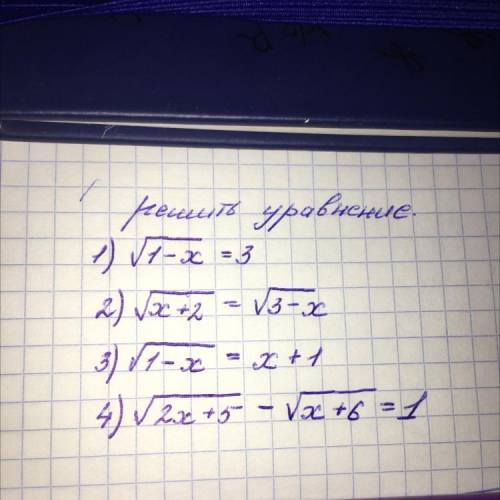 решить уравнение.
1) √1-x = 3
2) √x+2 = √3-x
3) √1-x = x+1
4) √2x+5 - √x+6 = 1